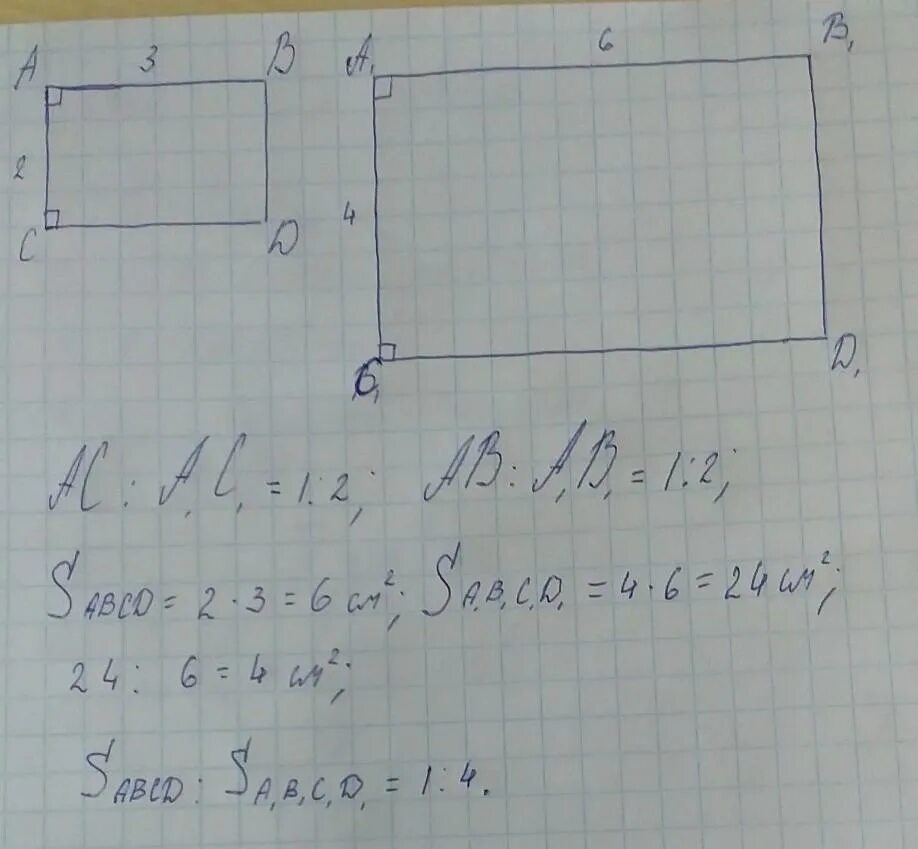 A 3 B A₁ 6 B₁
2 4
C D C₁ D₁
AC : A₁C₁ = 1:2; AB : A₁B₁ = 1:2;
S ABCD = 2 · 3 = 6 см²; S A₁B₁C₁D₁ = 4 · 6 = 24 см²;
24 : 6 = 4 см²;
S ABCD : S A₁B₁C₁D₁ = 1 : 4.